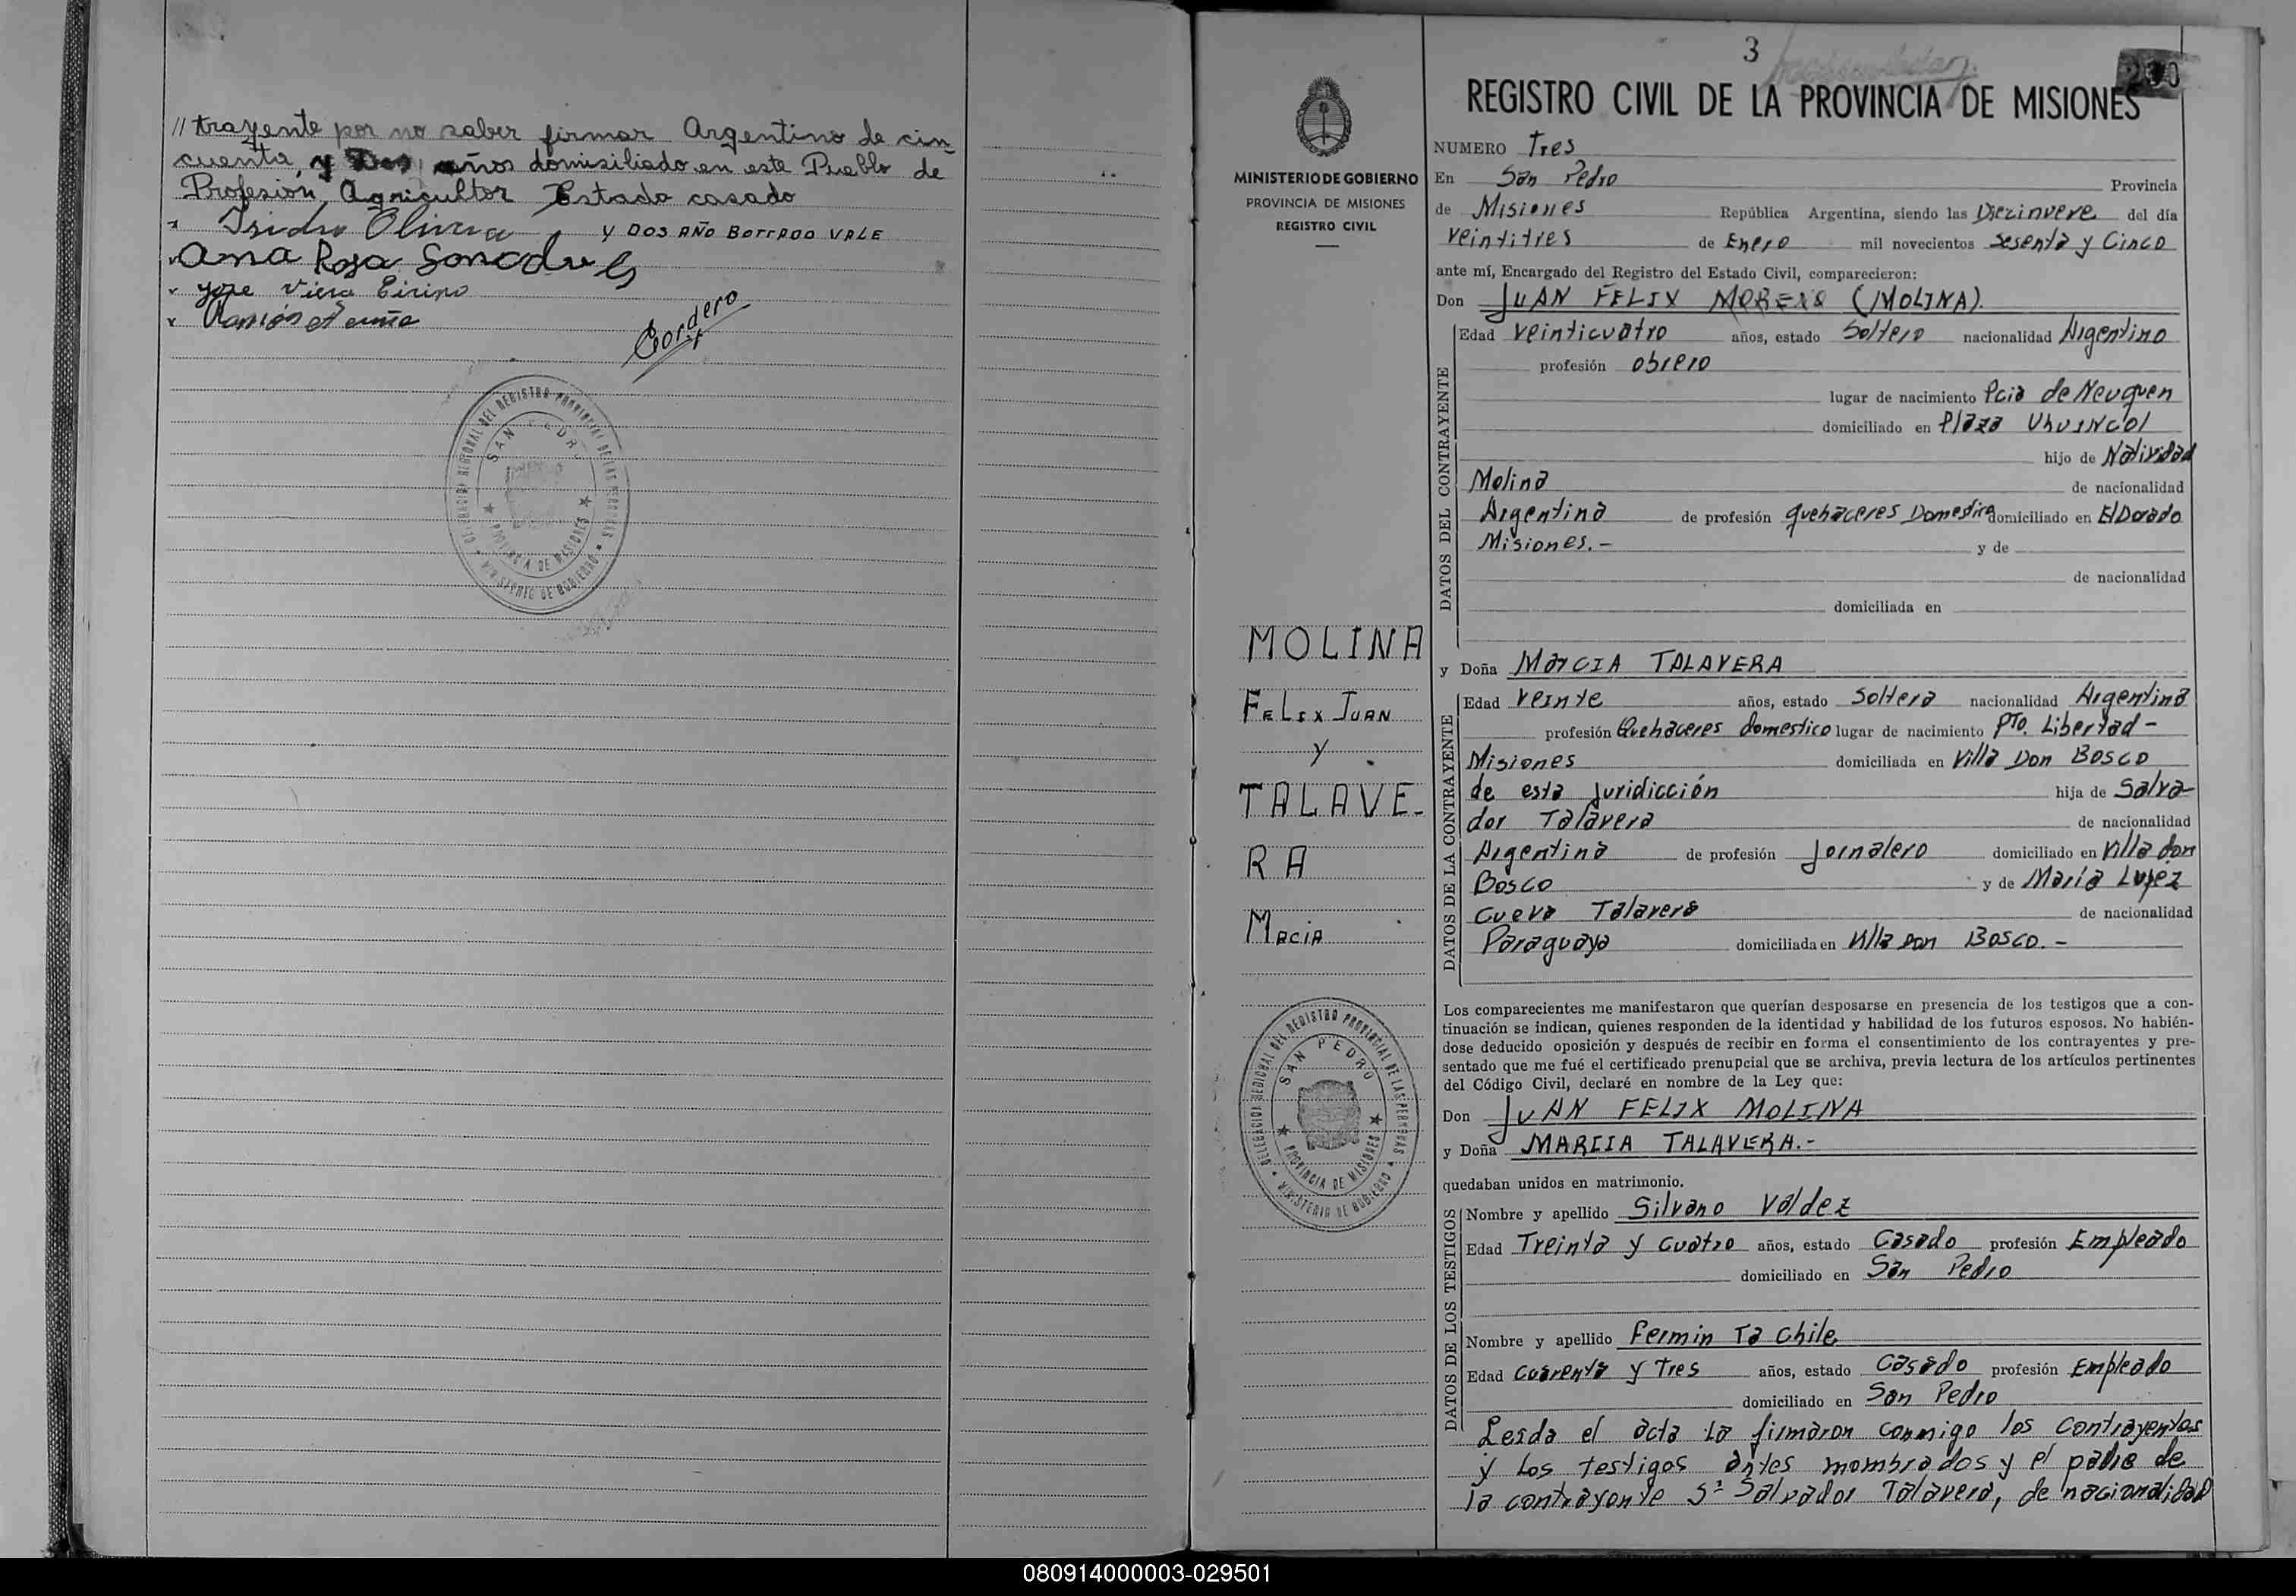 // trayente por no saber firmar Argentino de cin
cuenta y Dos años domisiliado en este Pueblo de
Profesión Agricultor Estado casado
Isidro Olivera Y DOS AÑO BORRADO VALE
Ana Rosa
Jose Viera
Ramón
Cordero
DELEGACION REGIONAL DEL REGISTRO PROVINCIAL DE LAS PERSONAS
SAN PEDRO
PROVINCIA DE MISIONES
MINISTERIO DE GOBIERNO
3
230
REGISTRO CIVIL DE LA PROVINCIA DE MISIONES
MINISTERIO DE GOBIERNO
PROVINCIA DE MISIONES
REGISTRO CIVIL
NUMERO Tres
En San Pedro Provincia
de Misiones República Argentina, siendo las Diezinueve del día
veintitres de Enero mil novecientos sesenta y Cinco
ante mí, Encargado del Registro del Estado Civil, comparecieron:
Don JUAN FELIX (MOLINA).
DATOS DEL CONTRAYENTE
Edad veinticuatro años, estado Soltero nacionalidad Argentino
profesión obrero
lugar de nacimiento Pcia de Neuquen
domiciliado en Plaza
hijo de Natividad
Molina de nacionalidad
Argentina de profesión quehaceres Domestico domiciliado en El Dorado
Misiones.- y de
de nacionalidad
domiciliada en
y Doña MARCIA TALAVERA
DATOS DE LA CONTRAYENTE
Edad veinte años, estado Soltera nacionalidad Argentina
profesión Quehaceres domestico lugar de nacimiento Pto. Libertad -
Misiones domiciliada en Villa Don Bosco
de esta juridicción hija de Salva
dor Talavera de nacionalidad
Argentina de profesión Jornalero domiciliado en Villa don
Bosco y de María Lopez
Cueva Talavera de nacionalidad
Paraguaya domiciliada en Villa Don Bosco.-
MOLINA
FELIX JUAN
Y
TALAVE-
RA
MACIA
DELEGACION REGIONAL DEL REGISTRO PROVINCIAL DE LAS PERSONAS
SAN PEDRO
PROVINCIA DE MISIONES
MINISTERIO DE GOBIERNO
Los comparecientes me manifestaron que querían desposarse en presencia de los testigos que a con-
tinuación se indican, quienes responden de la identidad y habilidad de los futuros esposos. No habién-
dose deducido oposición y después de recibir en forma el consentimiento de los contrayentes y pre-
sentado que me fué el certificado prenupcial que se archiva, previa lectura de los artículos pertinentes
del Código Civil, declaré en nombre de la Ley que:
Don JUAN FELIX MOLINA
y Doña MARCIA TALAVERA.-
quedaban unidos en matrimonio.
DATOS DE LOS TESTIGOS
Nombre y apellido Silvano Valdez
Edad Treinta y Cuatro años, estado Casado profesión Empleado
domiciliado en San Pedro
Nombre y apellido Fermin Ta chile
Edad Cuarenta y Tres años, estado Casado profesión Empleado
domiciliado en San Pedro
Leida el acta la firmaron conmigo los contrayentes
y los testigos antes mombrados y el padre de
la contrayente Sr Salvador Talavera, de nacionalidad
080914000003-029501